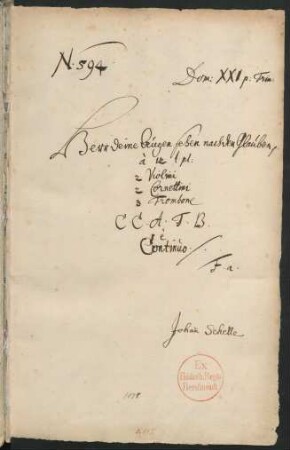 N. 594.
Dom: XXI p: Trin:
Herr deine Augen sehen nach dem Glauben,
à 12
2 Violini
2 Cornettini
3 Trombone
C C. A. T. B.
è
Continuo.
Johan Schelle
Ex
Biblioth. Regia
Berolinensi.